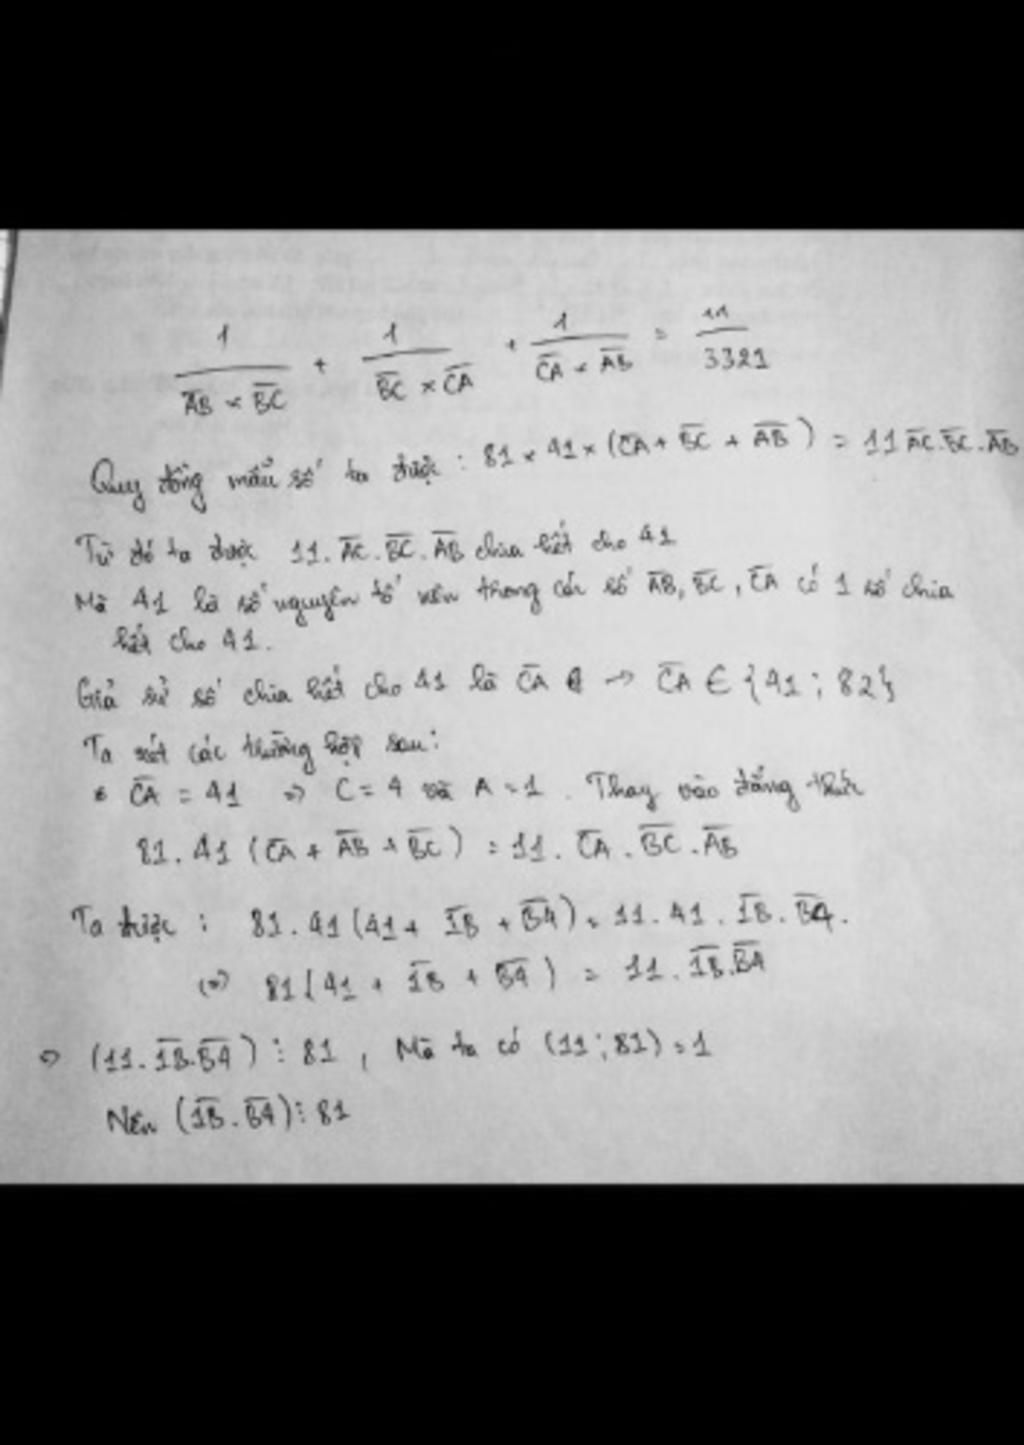 1/(AB × BC) + 1/(BC × CA) + 1/(CA × AB) = 11/3321
Quy đồng mẫu số ta được : 81 × 41 × (CA + BC + AB) = 11 AC.BC.AB
Từ đó ta được 11. AC. BC. AB chia hết cho 41
Mà 41 là số nguyên tố nên trong các số AB, BC, CA có 1 số chia
hết cho 41.
Giả sử số chia hết cho 41 là CA → CA ∈ {41 ; 82}
Ta xét các trường hợp sau:
* CA = 41 => C = 4 và A = 1 . Thay vào đẳng thức
81. 41 (CA + AB + BC) = 11. CA . BC . AB
Ta được : 81. 41 (41 + 1B + B4) = 11. 41. 1B. B4.
(=) 81 (41 + 1B + B4) = 11. 1B.B4
=> (11. 1B.B4) ⋮ 81 , Mà ta có (11 ; 81) = 1
Nên (1B. B4) ⋮ 81